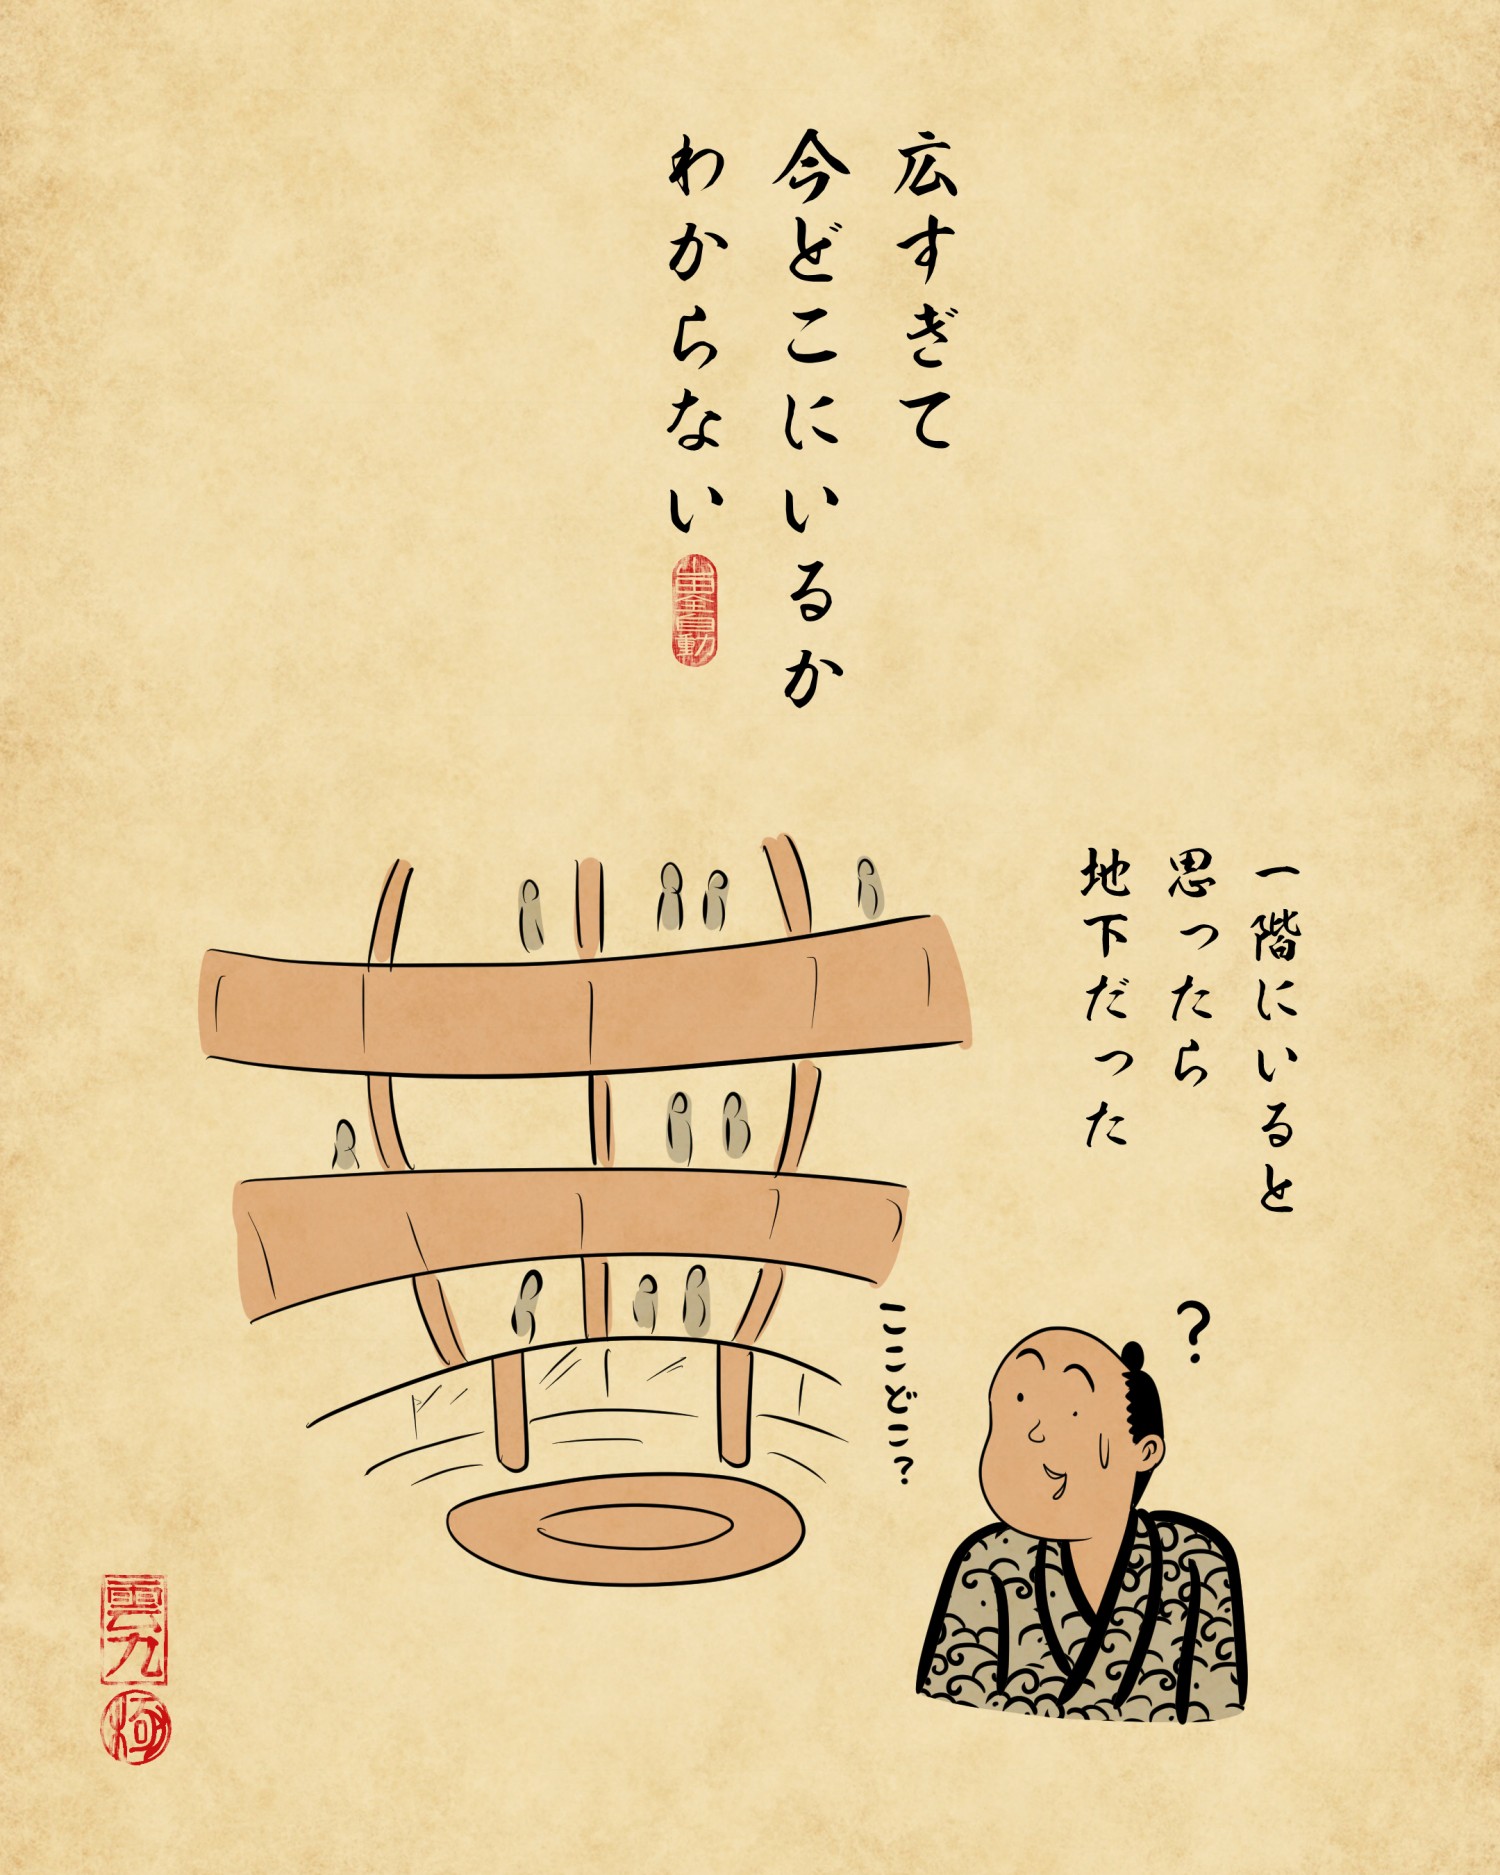 広すぎて
今どこにいるか
わからない
山田全自動
一階にいると
思ったら
地下だった
?
ここどこ?
雲九
極